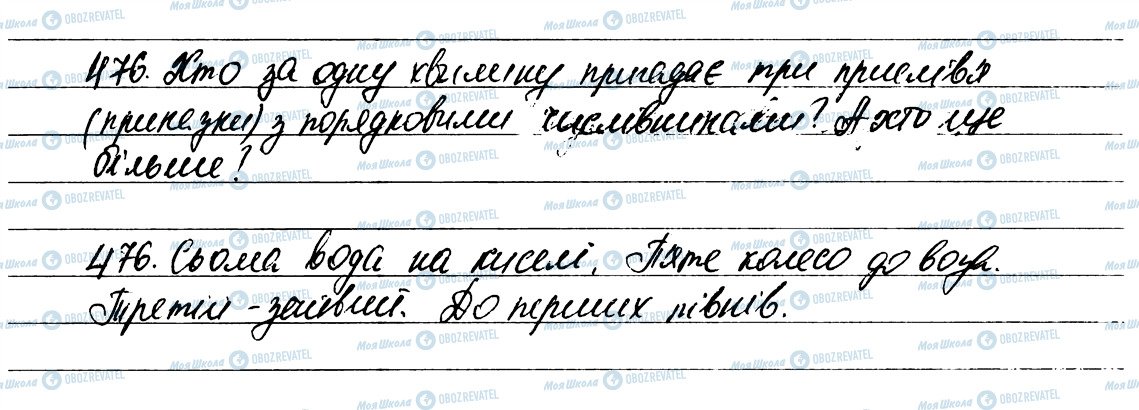 476. Хто за одну хвилину пригадає три прислів'я
(приказки) з порядковими числівниками? А хто ще
більше?
476. Сьома вода на киселі. П'яте колесо до воза.
Третій - зайвий. До перших півнів.